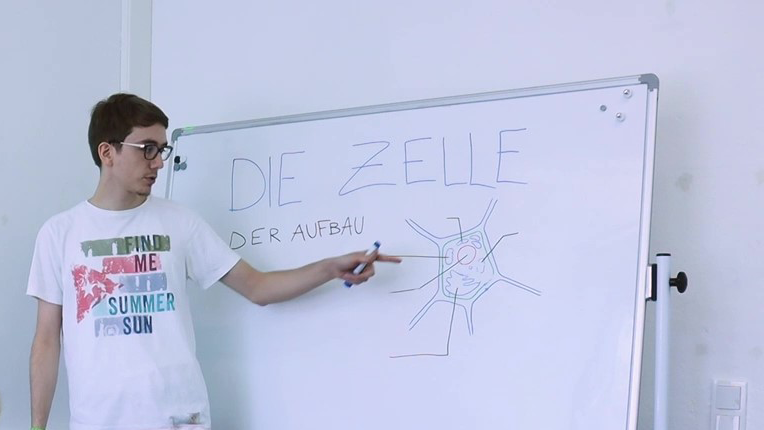 DIE ZELLE
DER AUFBAU
FIND
ME
SUMMER
SUN